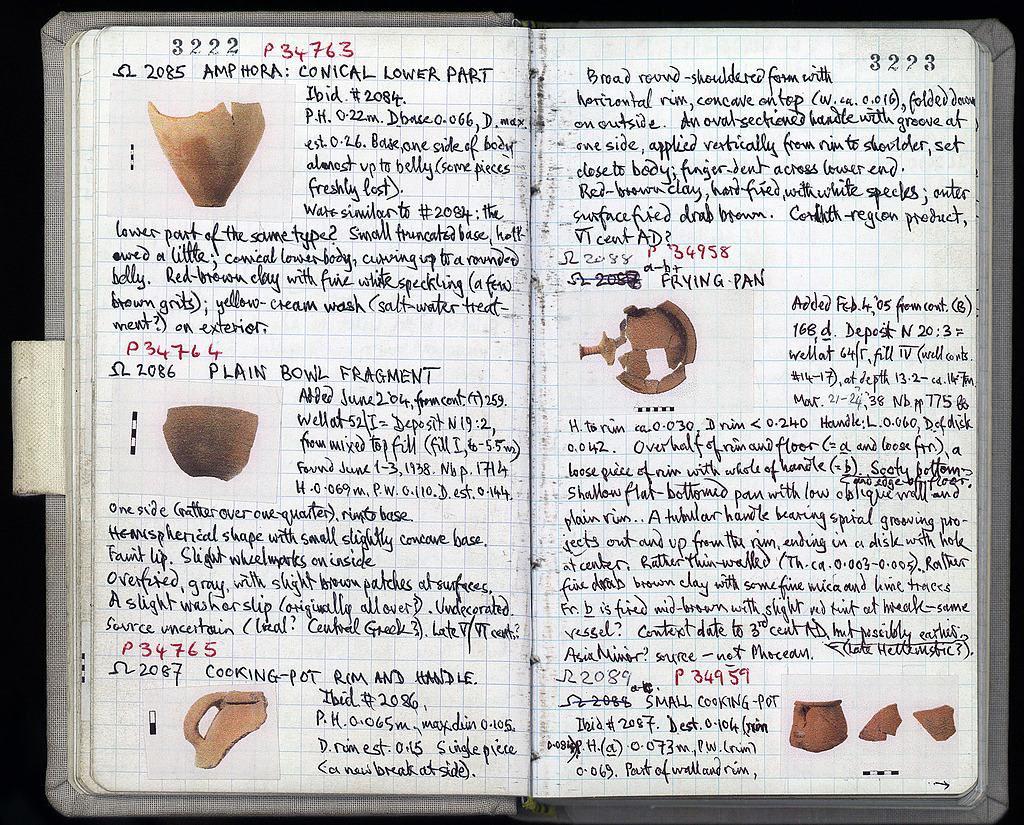 3222 P 34763
Ω 2085 AMPHORA: CONICAL LOWER PART
Ibid. # 2084.
P.H. 0.22m. D base 0.066, D. max
est. 0.26. Base, one side of body
almost up to belly (some pieces
freshly lost).
Ware similar to # 2084: the
lower part of the same type? Small truncated base, holl-
owed a little; conical lower body, curving up to a rounded
belly. Red-brown clay with fine white speckling (a few
brown grits); yellow-cream wash (salt-water treat-
ment?) on exterior.
P 34764
Ω 2086 PLAIN BOWL FRAGMENT
Added June 2 '04, from cont. (T) 259.
Well at 52/I = Deposit N 19:2,
from mixed top fill (fill I, to -5.5m)
Found June 1-3, 1938. Nb p. 1714
H. 0.069m, P.W. 0.110. D. est. 0.144.
One side (rather over one-quarter), rim to base.
Hemispherical shape with small slightly concave base.
Faint lip. Slight wheelmarks on inside
Overfired, gray, with slight brown patches at surfaces.
A slight wash or slip (originally all over?). Undecorated.
Source uncertain (local? Central Greek?). Late V/VI cent.?
P 34765
Ω 2087 COOKING-POT RIM AND HANDLE.
Ibid. # 2086.
P.H. 0.065m, max. dim 0.105.
D. rim est. 0.15 Single piece
(a new break at side).
3223
Broad round-shouldered form with
horizontal rim, concave on top (W. ca. 0.016), folded down
on outside. An oval sectioned handle with groove at
one side, applied vertically from rim to shoulder, set
close to body; finger-dent across lower end.
Red-brown clay, hard-fired, with white specles; outer
surface fired drab brown. Corinth-region product,
VI cent AD?
Ω 2088 P 34958
a-b+ FRYING-PAN
Added Feb. 4, '05 from cont. (B)
168, d. Deposit N 20:3 =
well at 64/Γ, fill IV (well conts.
#14-17), at depth 13.2 - ca. 14.7m.
Mar. 21-24, '38 Nb. pp 775
H. to rim ca. 0.030, D rim < 0.240 Handle: L. 0.060, D. of disk
0.042. Over half of rim and floor (= a and loose frr), a
loose piece of rim with whole of handle (= b). Sooty bottom
and edge of floor.
Shallow flat-bottomed pan with low oblique wall and
plain rim. A tubular handle bearing spiral grooving pro-
jects out and up from the rim, ending in a disk with hole
at center. Rather thin-walled (Th. ca. 0.003-0.005). Rather
fine drab brown clay with some fine mica and lime traces
Fr. b is fired mid-brown with slight red tint at break – same
vessel? Context date to 3rd cent AD, but possibly earlier,
(late Hellenistic?).
Asia Minor? source – not Phocean.
Ω 2089 P 34959
Ω 2088 a-c. SMALL COOKING-POT
Ibid # 2087. D est. 0.104 (rim
0.081) P.H. (a) 0.073m, P.W. (rim)
0.069. Part of wall and rim,
→